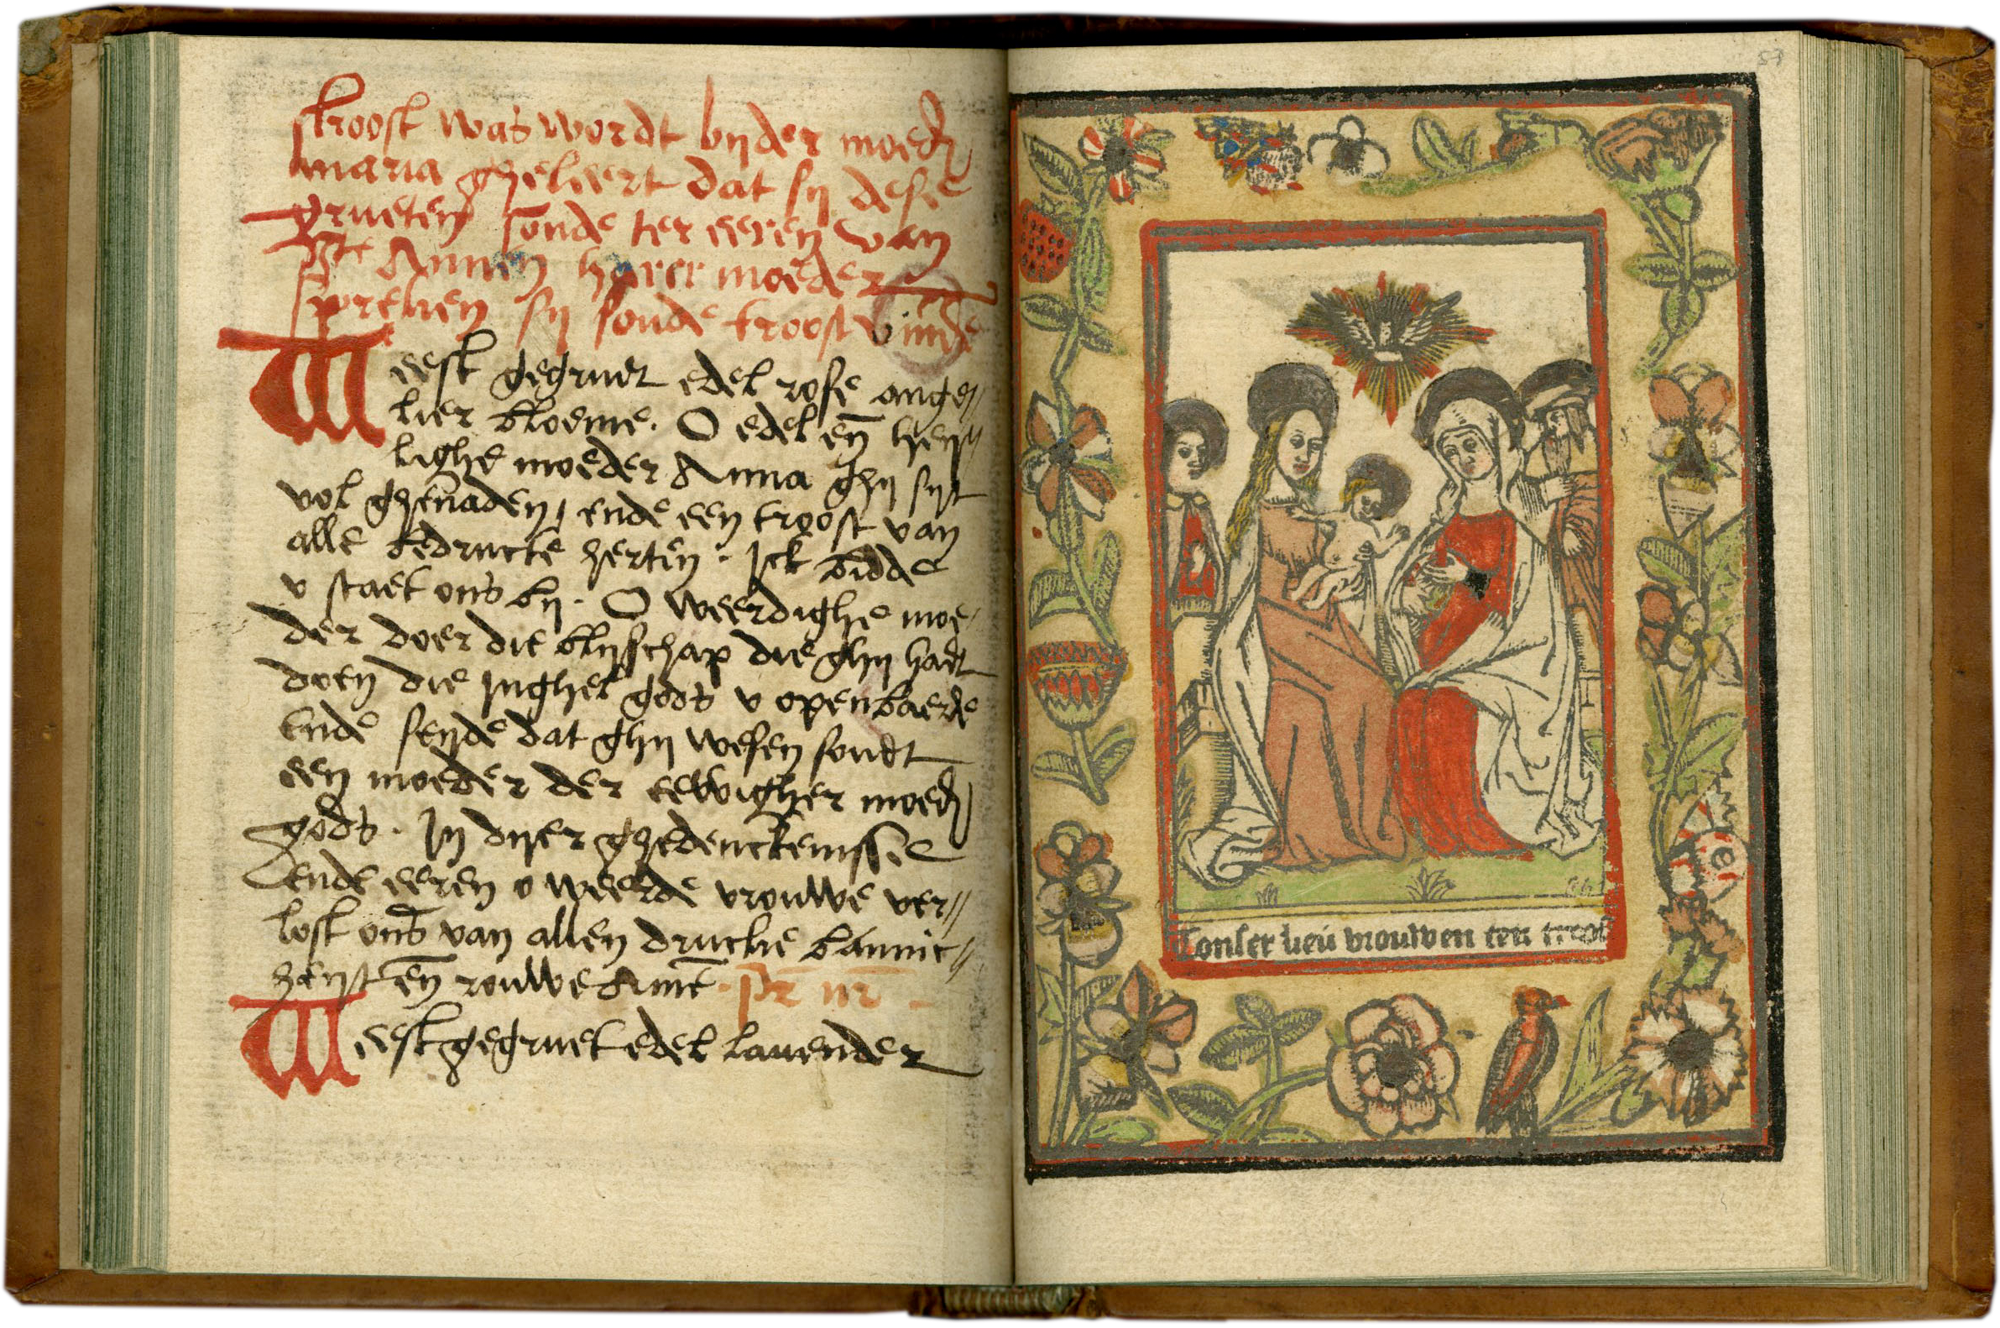 troost was wordt bij der moed̄
maria gheleert dat sij dese
grueten soude ter eeren van
Ste Annen harer moeder
spreken sij soude troost vinde
Weest gegruet edel rose ange//
lier bloeme. O edel en̄ hey//
lighe moeder Anna ghij sijt
vol ghenaden, ende een troost van
alle bedructe herten. Ick bidde
v staet ons bij. O weerdighe moe/
der doer die blijschap die ghij hadt
doen die Inghel gods v openbaerde
ende seyde dat ghij wesen soudt
een moeder der eewigher moed̄
gods. In dijer ghedenckenissē
ende eeren o weerde vrouwe ver//
lost ons van allen drucke
en̄ rouwe Amē. pr̄ nr̄
Weest gegruet edel lauender
57
Tonser lieū vrouwen ten troost